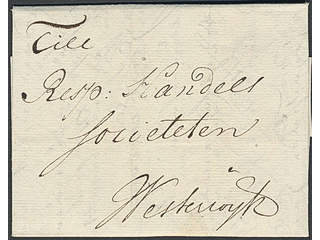 Till
Resp: Handels
Societeten
Westerwyk